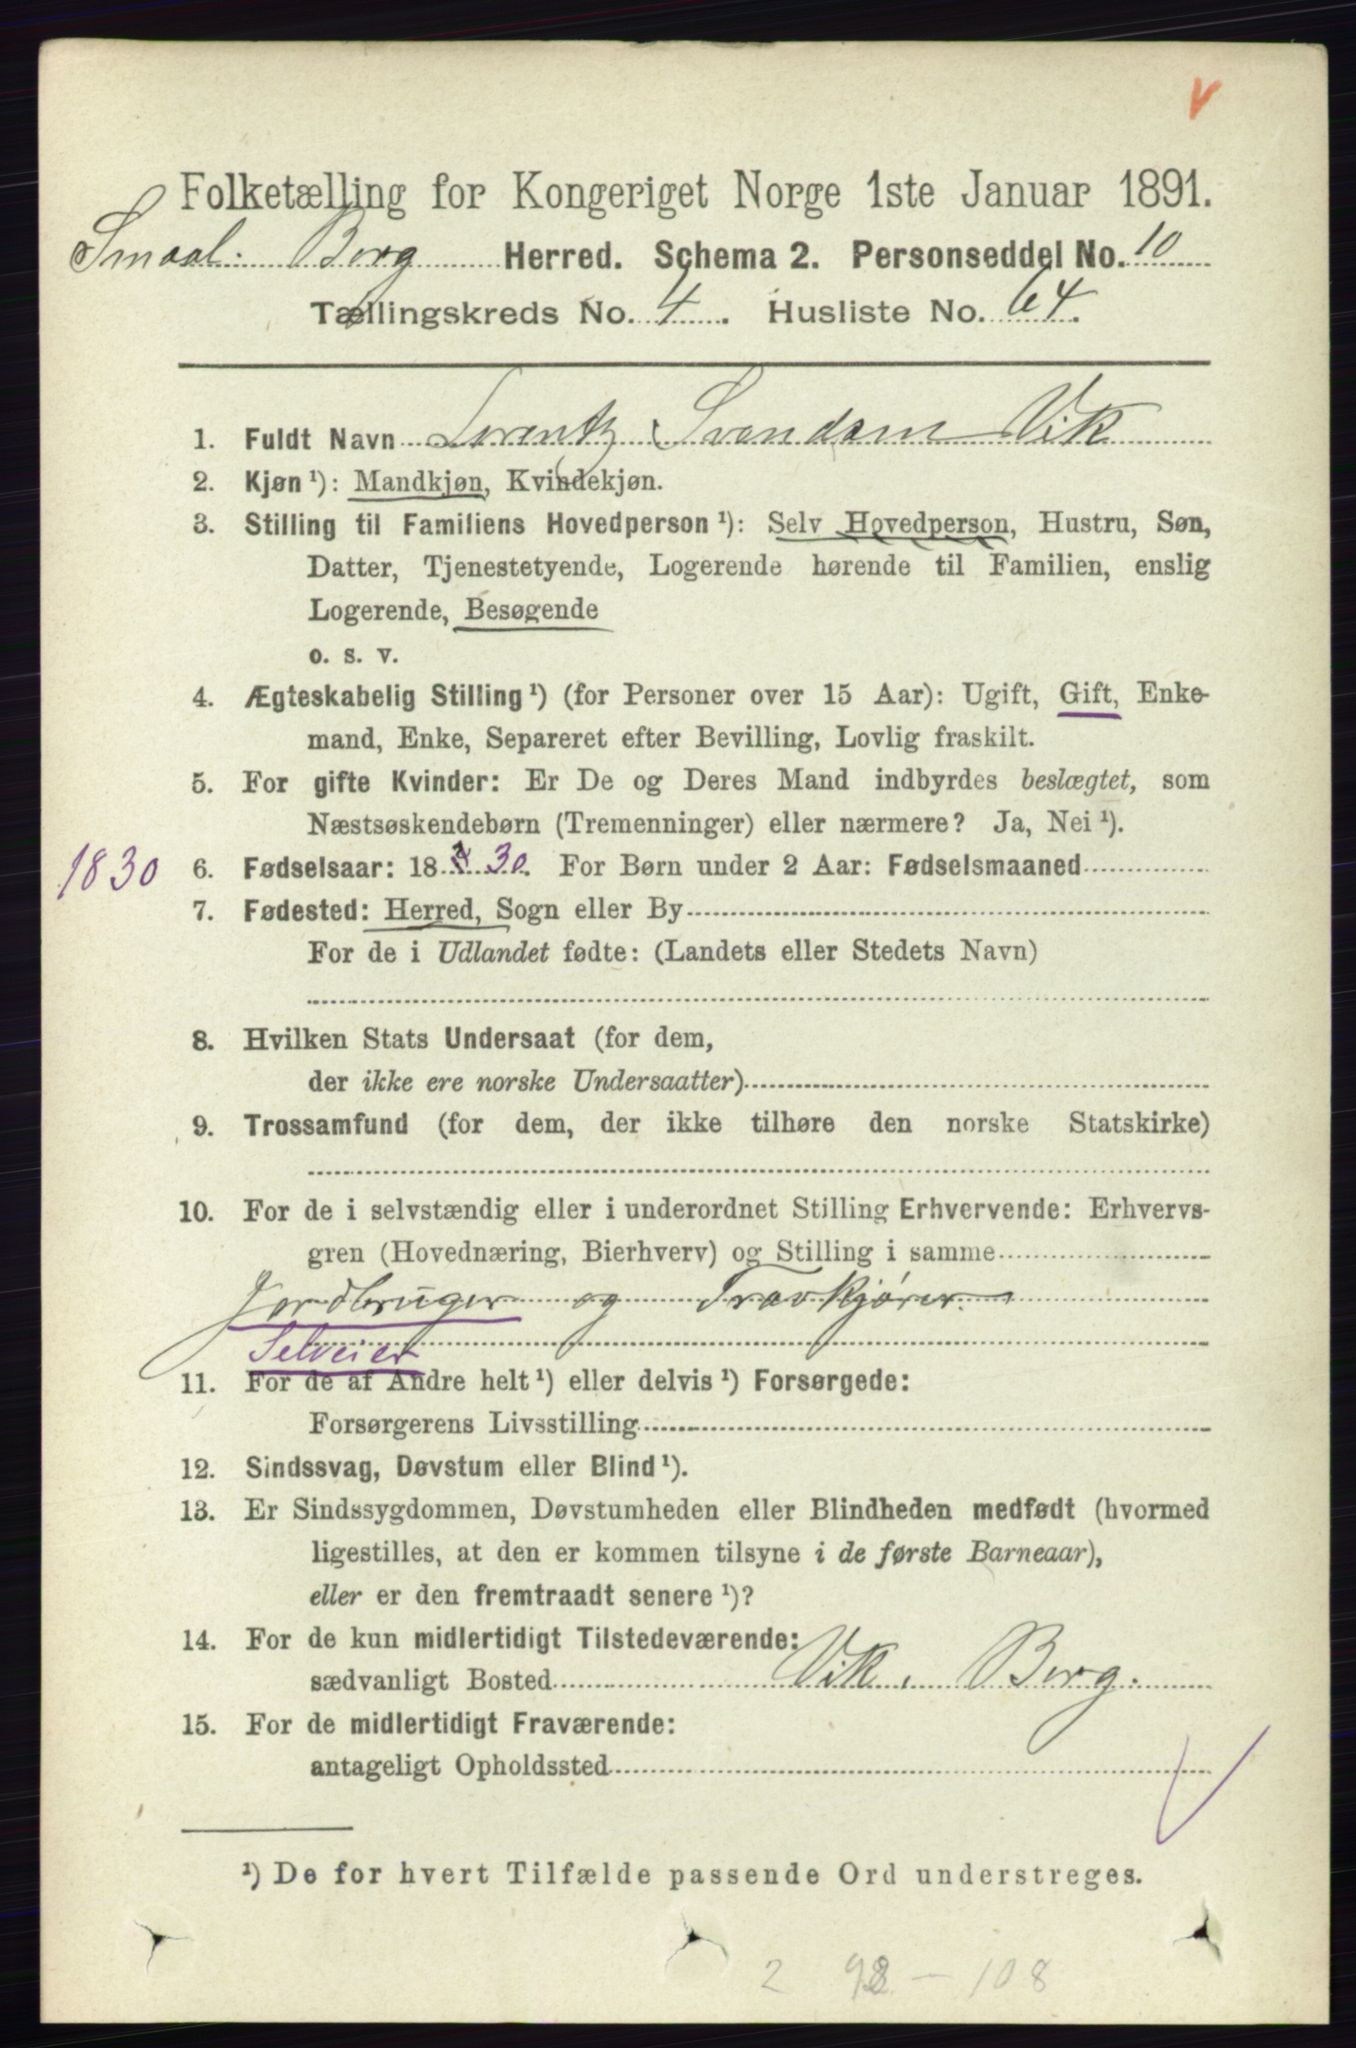 V
Folketælling for Kongeriget Norge 1ste Januar 1891.
Smaal. Berg Herred. Schema 2. Personseddel No. 10
Tællingskreds No. 4. Husliste No. 64.
1. Fuldt Navn Lorentz Svendsen Vik
2. Kjøn ¹): Mandkjøn, Kvindekjøn.
3. Stilling til Familiens Hovedperson ¹): Selv Hovedperson, Hustru, Søn,
Datter, Tjenestetyende, Logerende hørende til Familien, enslig
Logerende, Besøgende
o. s. v.
4. Ægteskabelig Stilling ¹) (for Personer over 15 Aar): Ugift, Gift, Enke-
mand, Enke, Separeret efter Bevilling, Lovlig fraskilt.
5. For gifte Kvinder: Er De og Deres Mand indbyrdes beslægtet, som
Næstsøskendebørn (Tremenninger) eller nærmere? Ja, Nei ¹).
1830 6. Fødselsaar: 18 30. For Børn under 2 Aar: Fødselsmaaned
7. Fødested: Herred, Sogn eller By
For de i Udlandet fødte: (Landets eller Stedets Navn)
8. Hvilken Stats Undersaat (for dem,
der ikke ere norske Undersaatter)
9. Trossamfund (for dem, der ikke tilhøre den norske Statskirke)
10. For de i selvstændig eller i underordnet Stilling Erhvervende: Erhvervs-
gren (Hovednæring, Bierhverv) og Stilling i samme
Jordbruger og Travkjører.
Selveier
11. For de af Andre helt ¹) eller delvis ¹) Forsørgede:
Forsørgerens Livsstilling
12. Sindssvag, Døvstum eller Blind ¹).
13. Er Sindssygdommen, Døvstumheden eller Blindheden medfødt (hvormed
ligestilles, at den er kommen tilsyne i de første Barneaar),
eller er den fremtraadt senere ¹)?
14. For de kun midlertidigt Tilstedeværende:
sædvanligt Bosted Vik, Berg.
15. For de midlertidigt Fraværende:
antageligt Opholdssted
¹) De for hvert Tilfælde passende Ord understreges.
2 98 - 108